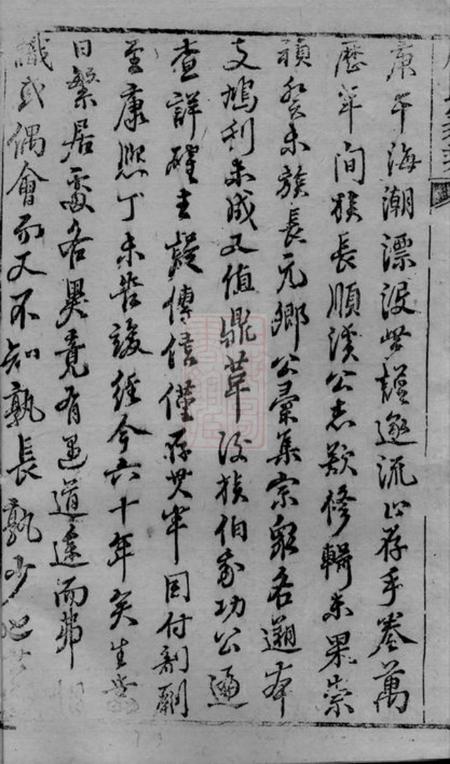 庚午海潮漂沒世譜逐流止存手卷萬
歷年間族長順溪公志歎修輯未果崇
禎癸未族長元鄉公彙集宗親各溯本
支鳩利未成又值鼎革 後族伯公功公遍
查詳確去疑傳信僅存其半因付剞劂
至康熙丁未告竣經今六十年矣生齒
日繁居處各異竟有遇道途而弗
識或偶會而又不知孰長孰少也